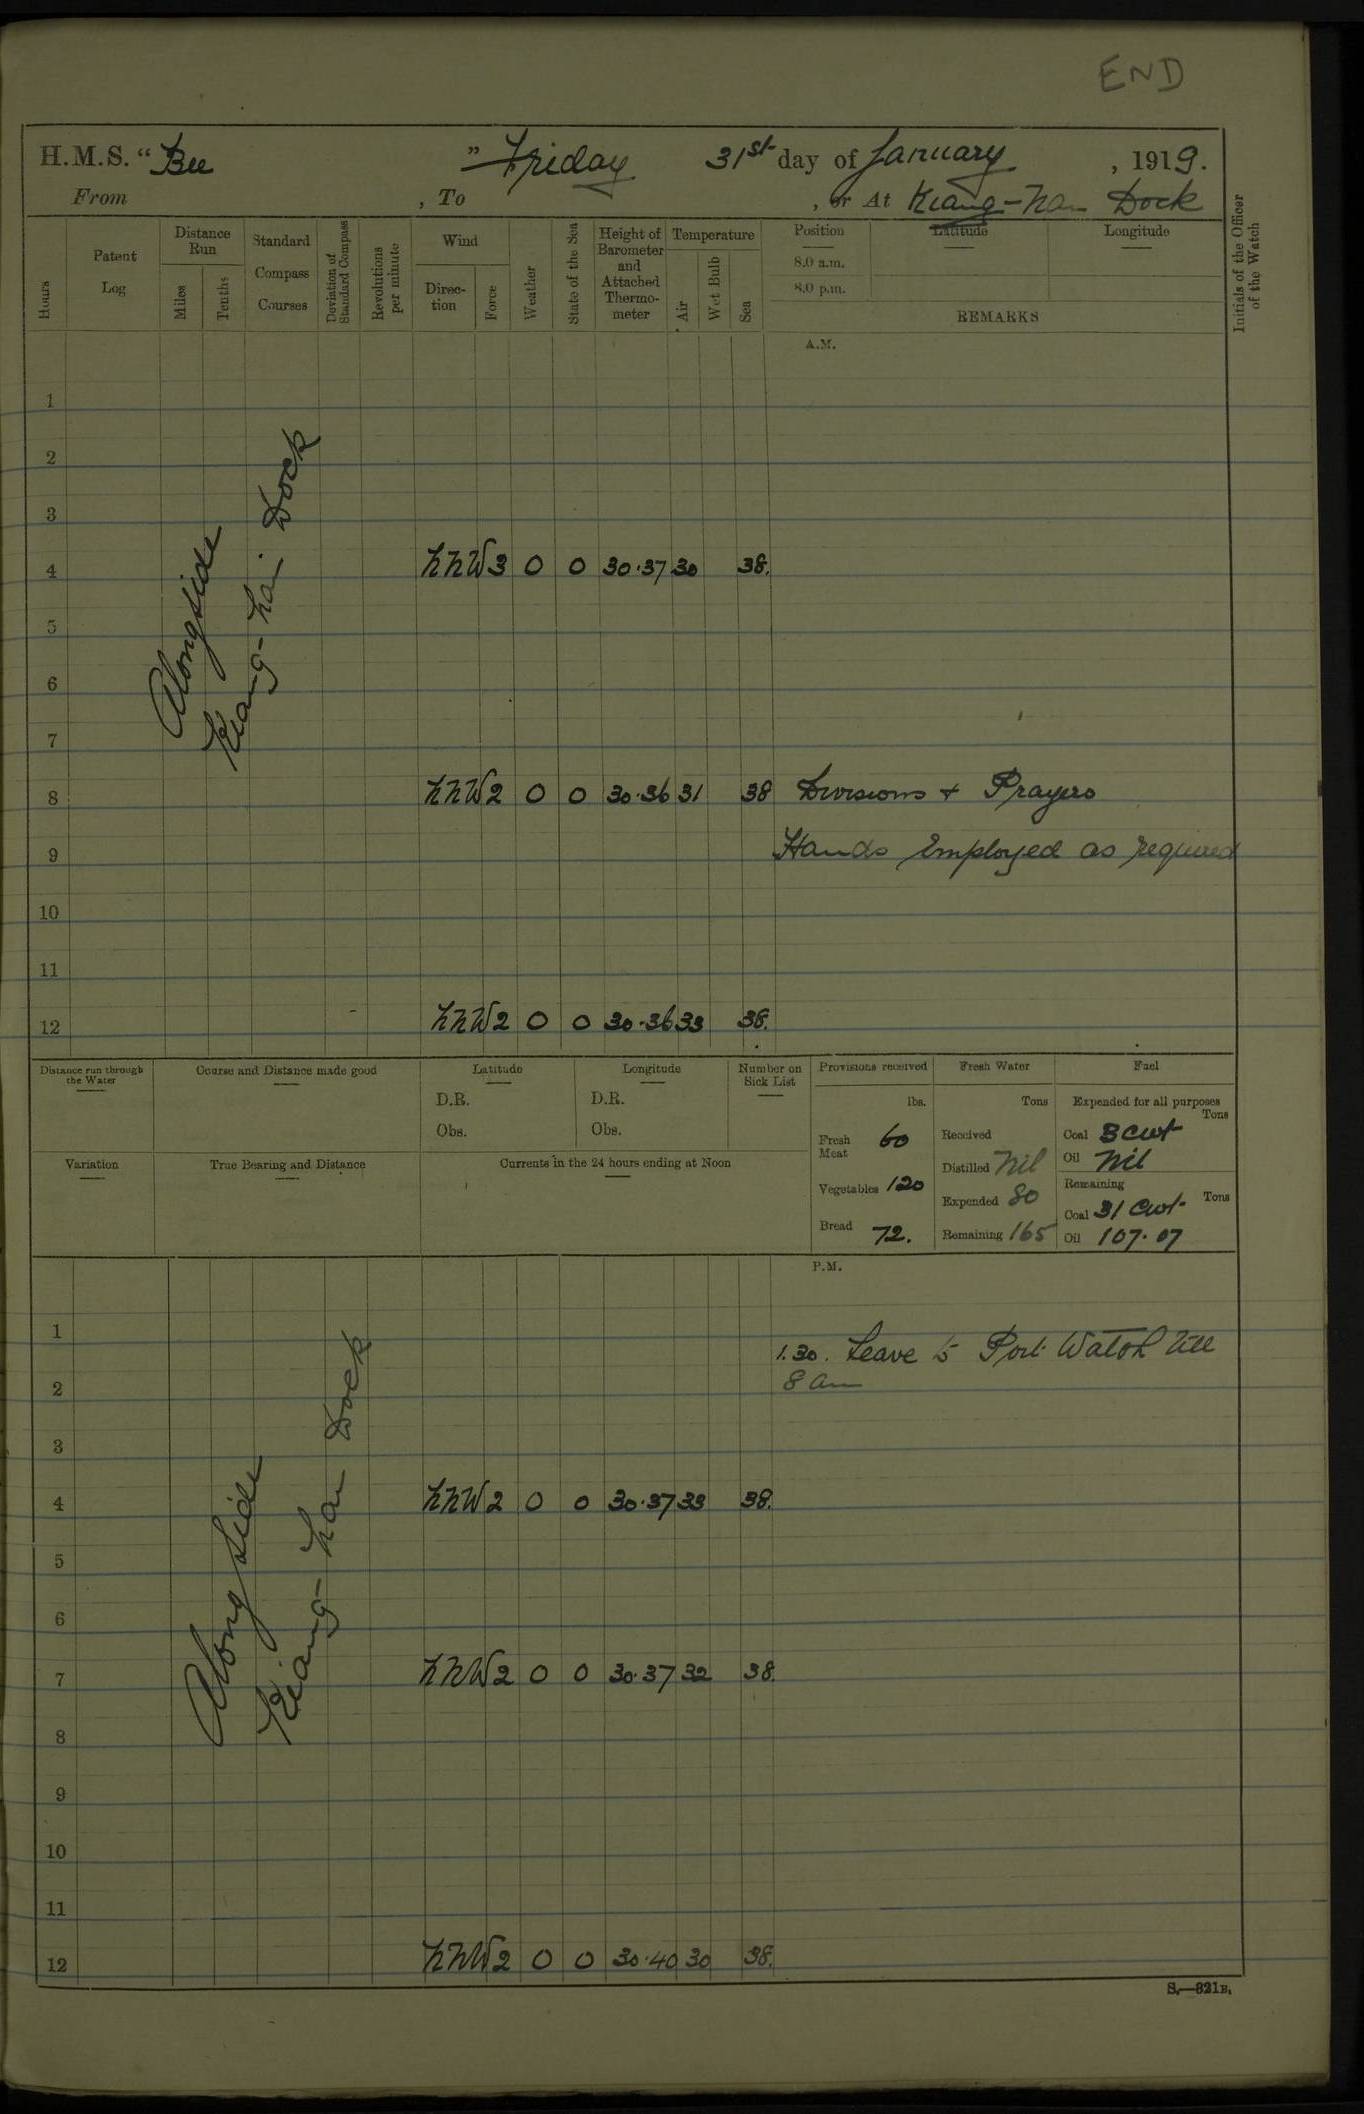 END
H.M.S. “ Bee ” Friday 31st day of January , 1919.
From , To , or At Kiang-Nan Dock
Hours
Patent Log
Distance Run
Miles
Tenths
Standard Compass Courses
Deviation of Standard Compass
Revolutions per minute
Wind
Direction
Force
Weather
State of the Sea
Height of Barometer and Attached Thermometer
Temperature
Air
Wet Bulb
Sea
Position
8.0 a.m.
8.0 p.m.
Latitude
Longitude
REMARKS
Initials of the Officer of the Watch
A.M.
Alongside
Kiang-Nan Dock
1
2
3
4 NNW 3 0 0 30.37 30 38.
5
6
7
8 NNW 2 0 0 30.36 31 38 Divisions + Prayers
9 Hands Employed as required
10
11
12 NNW 2 0 0 30.36 33 38.
Distance run through the Water
Course and Distance made good
Latitude
D.R.
Obs.
Longitude
D.R.
Obs.
Number on Sick List
Variation
True Bearing and Distance
Currents in the 24 hours ending at Noon
Provisions received
lbs.
Fresh Meat 60
Vegetables 120
Bread 72.
Fresh Water
Tons
Received
Distilled Nil
Expended 80
Remaining 165
Fuel
Expended for all purposes
Tons
Coal 3 cwt
Oil Nil
Remaining
Tons
Coal 31 cwt.
Oil 107.07
P.M.
Alongside
Kiang-Nan Dock
1 1.30. Leave to Port Watch till
2 8 am
3
4 NNW 2 0 0 30.37 33 38.
5
6
7 NNW 2 0 0 30.37 32 38.
8
9
10
11
12 NNW 2 0 0 30.40 30 38.
S.—321B.